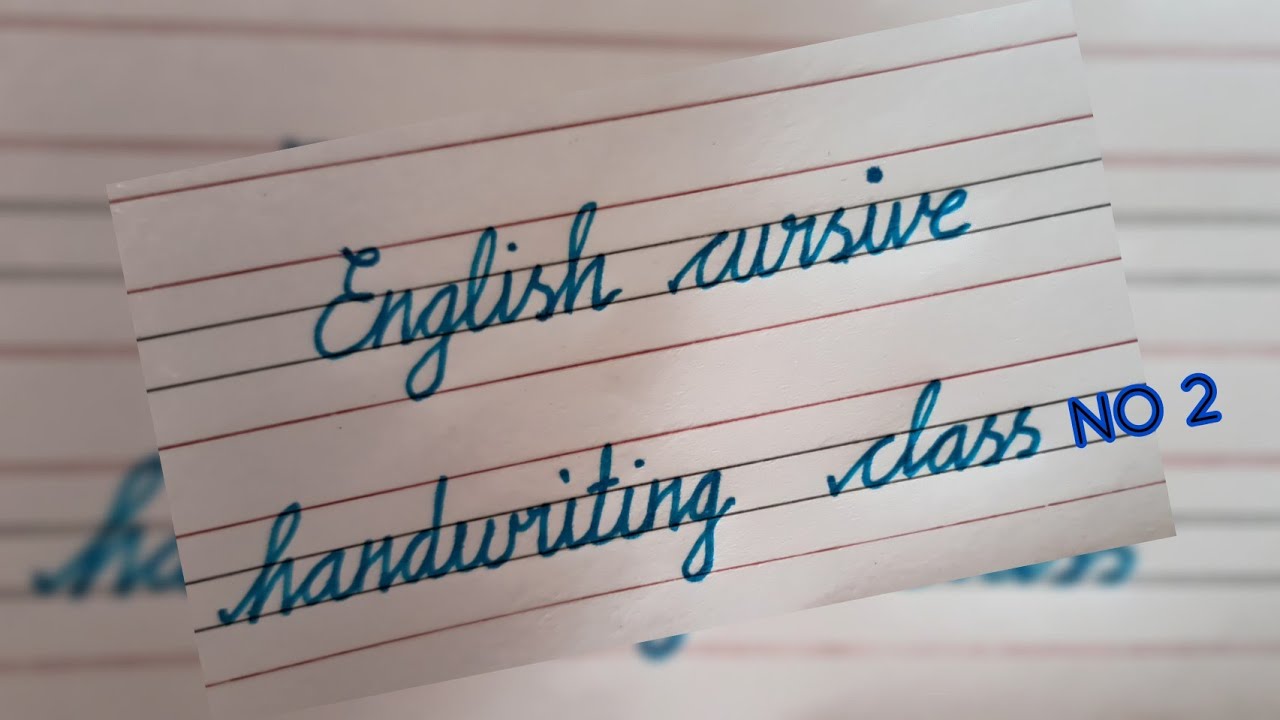 English cursive
handwriting class NO 2